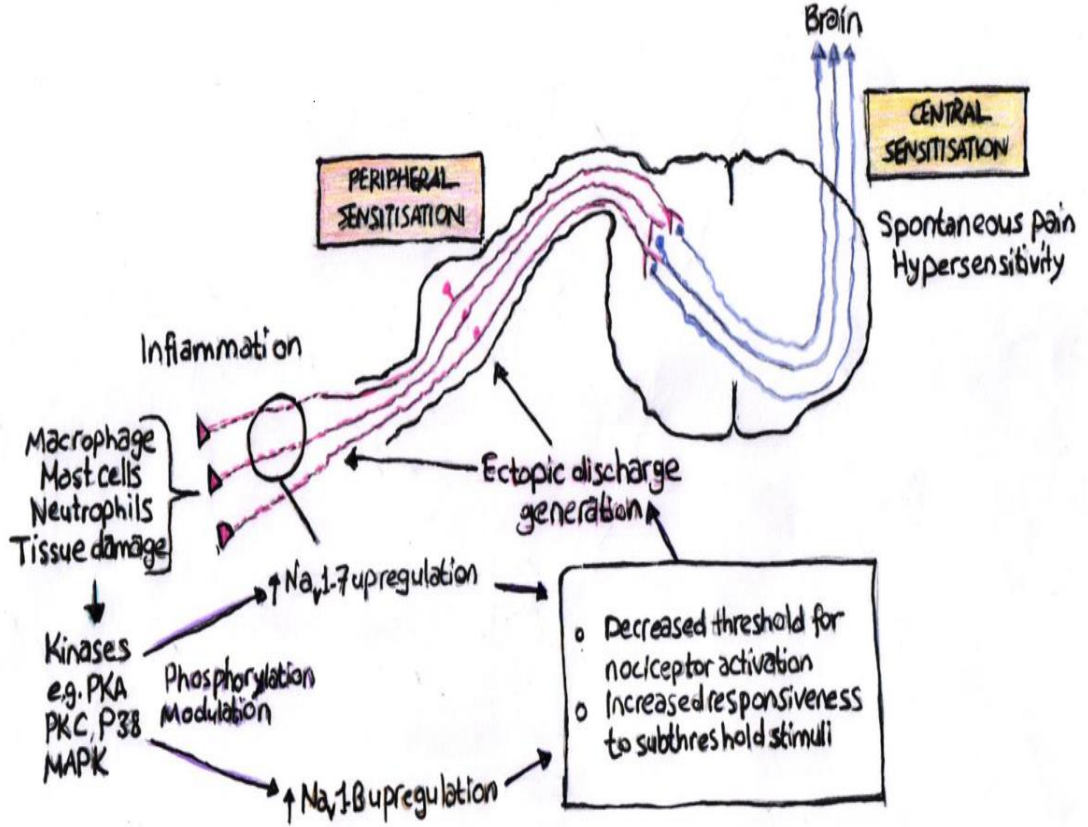 Brain
CENTRAL
SENSITISATION
PERIPHERAL
SENSITISATION
Spontaneous pain
Hypersensitivity
Inflammation
Macrophage
Mast cells
Neutrophils
Tissue damage
Ectopic discharge
generation
↑ Nav1.7 upregulation
Kinases
e.g. PKA
PKC, P38
MAPK
Phosphorylation
Modulation
↑ Nav1.8 upregulation
o Decreased threshold for
nociceptor activation
o Increased responsiveness
to subthreshold stimuli